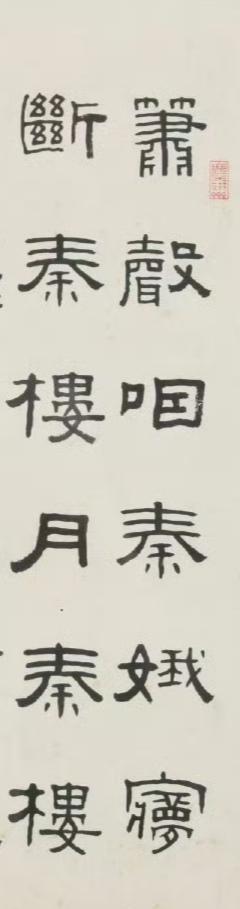 簫聲咽秦娥㝱
斷秦樓月秦樓